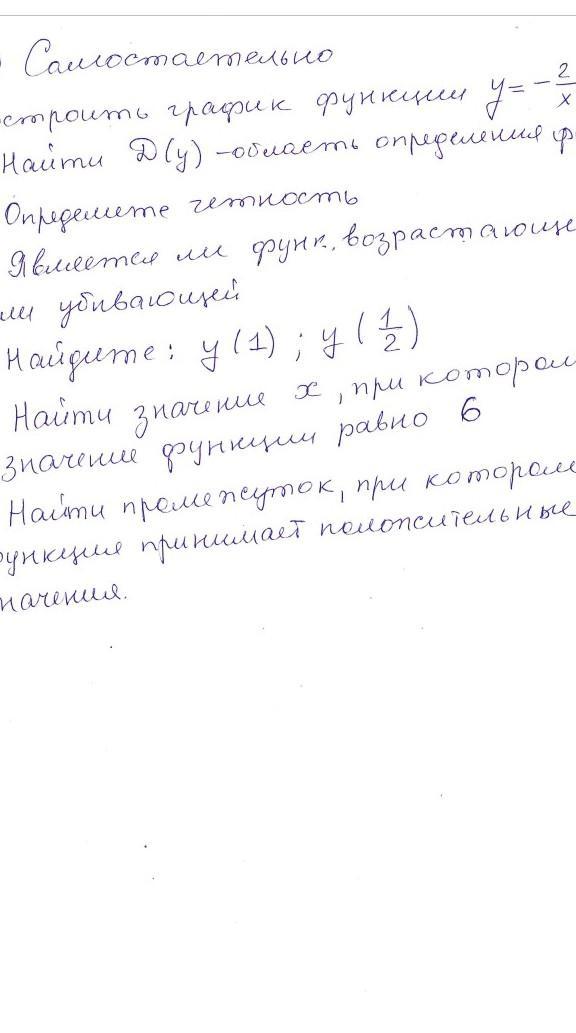 ) Самостаетельно
строить график функции y = - 2/x
Найти D(y) - область определения ф
Определете четность
Является ли функ. возрастающе
ли убивающей
Найдите: y(1) ; y(1/2)
Найти значение x, при котором
значение функции равно 6
Найти промежуток, при котором
ункция принимает положительные
начения.